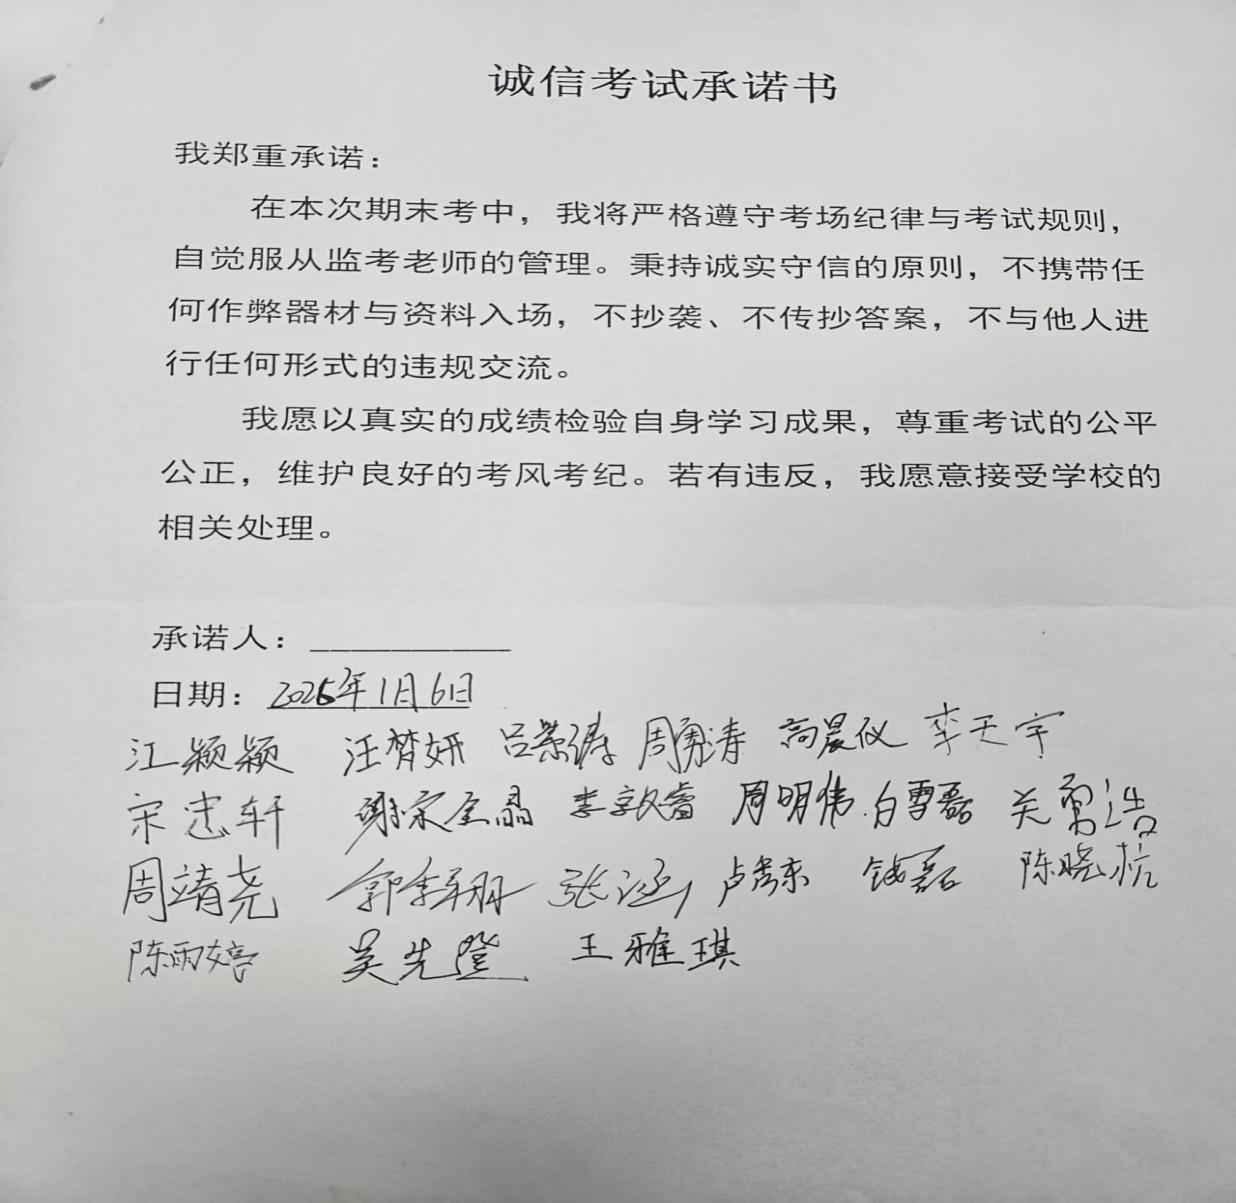 诚信考试承诺书
我郑重承诺：
在本次期末考中，我将严格遵守考场纪律与考试规则，
自觉服从监考老师的管理。秉持诚实守信的原则，不携带任
何作弊器材与资料入场，不抄袭、不传抄答案，不与他人进
行任何形式的违规交流。
我愿以真实的成绩检验自身学习成果，尊重考试的公平
公正，维护良好的考风考纪。若有违反，我愿意接受学校的
相关处理。
承诺人：__________
日期：2026年1月6日
江颖颖 汪梦妍 吕荣涛 周勇涛 高晨仪 李天宇
宋忠轩 李敦睿 周明伟 白雪磊 关勇浩
周靖尧 郭李羽 张涵 卢秀东 钱磊 陈晓杭
陈雨婷 吴先登 王雅琪